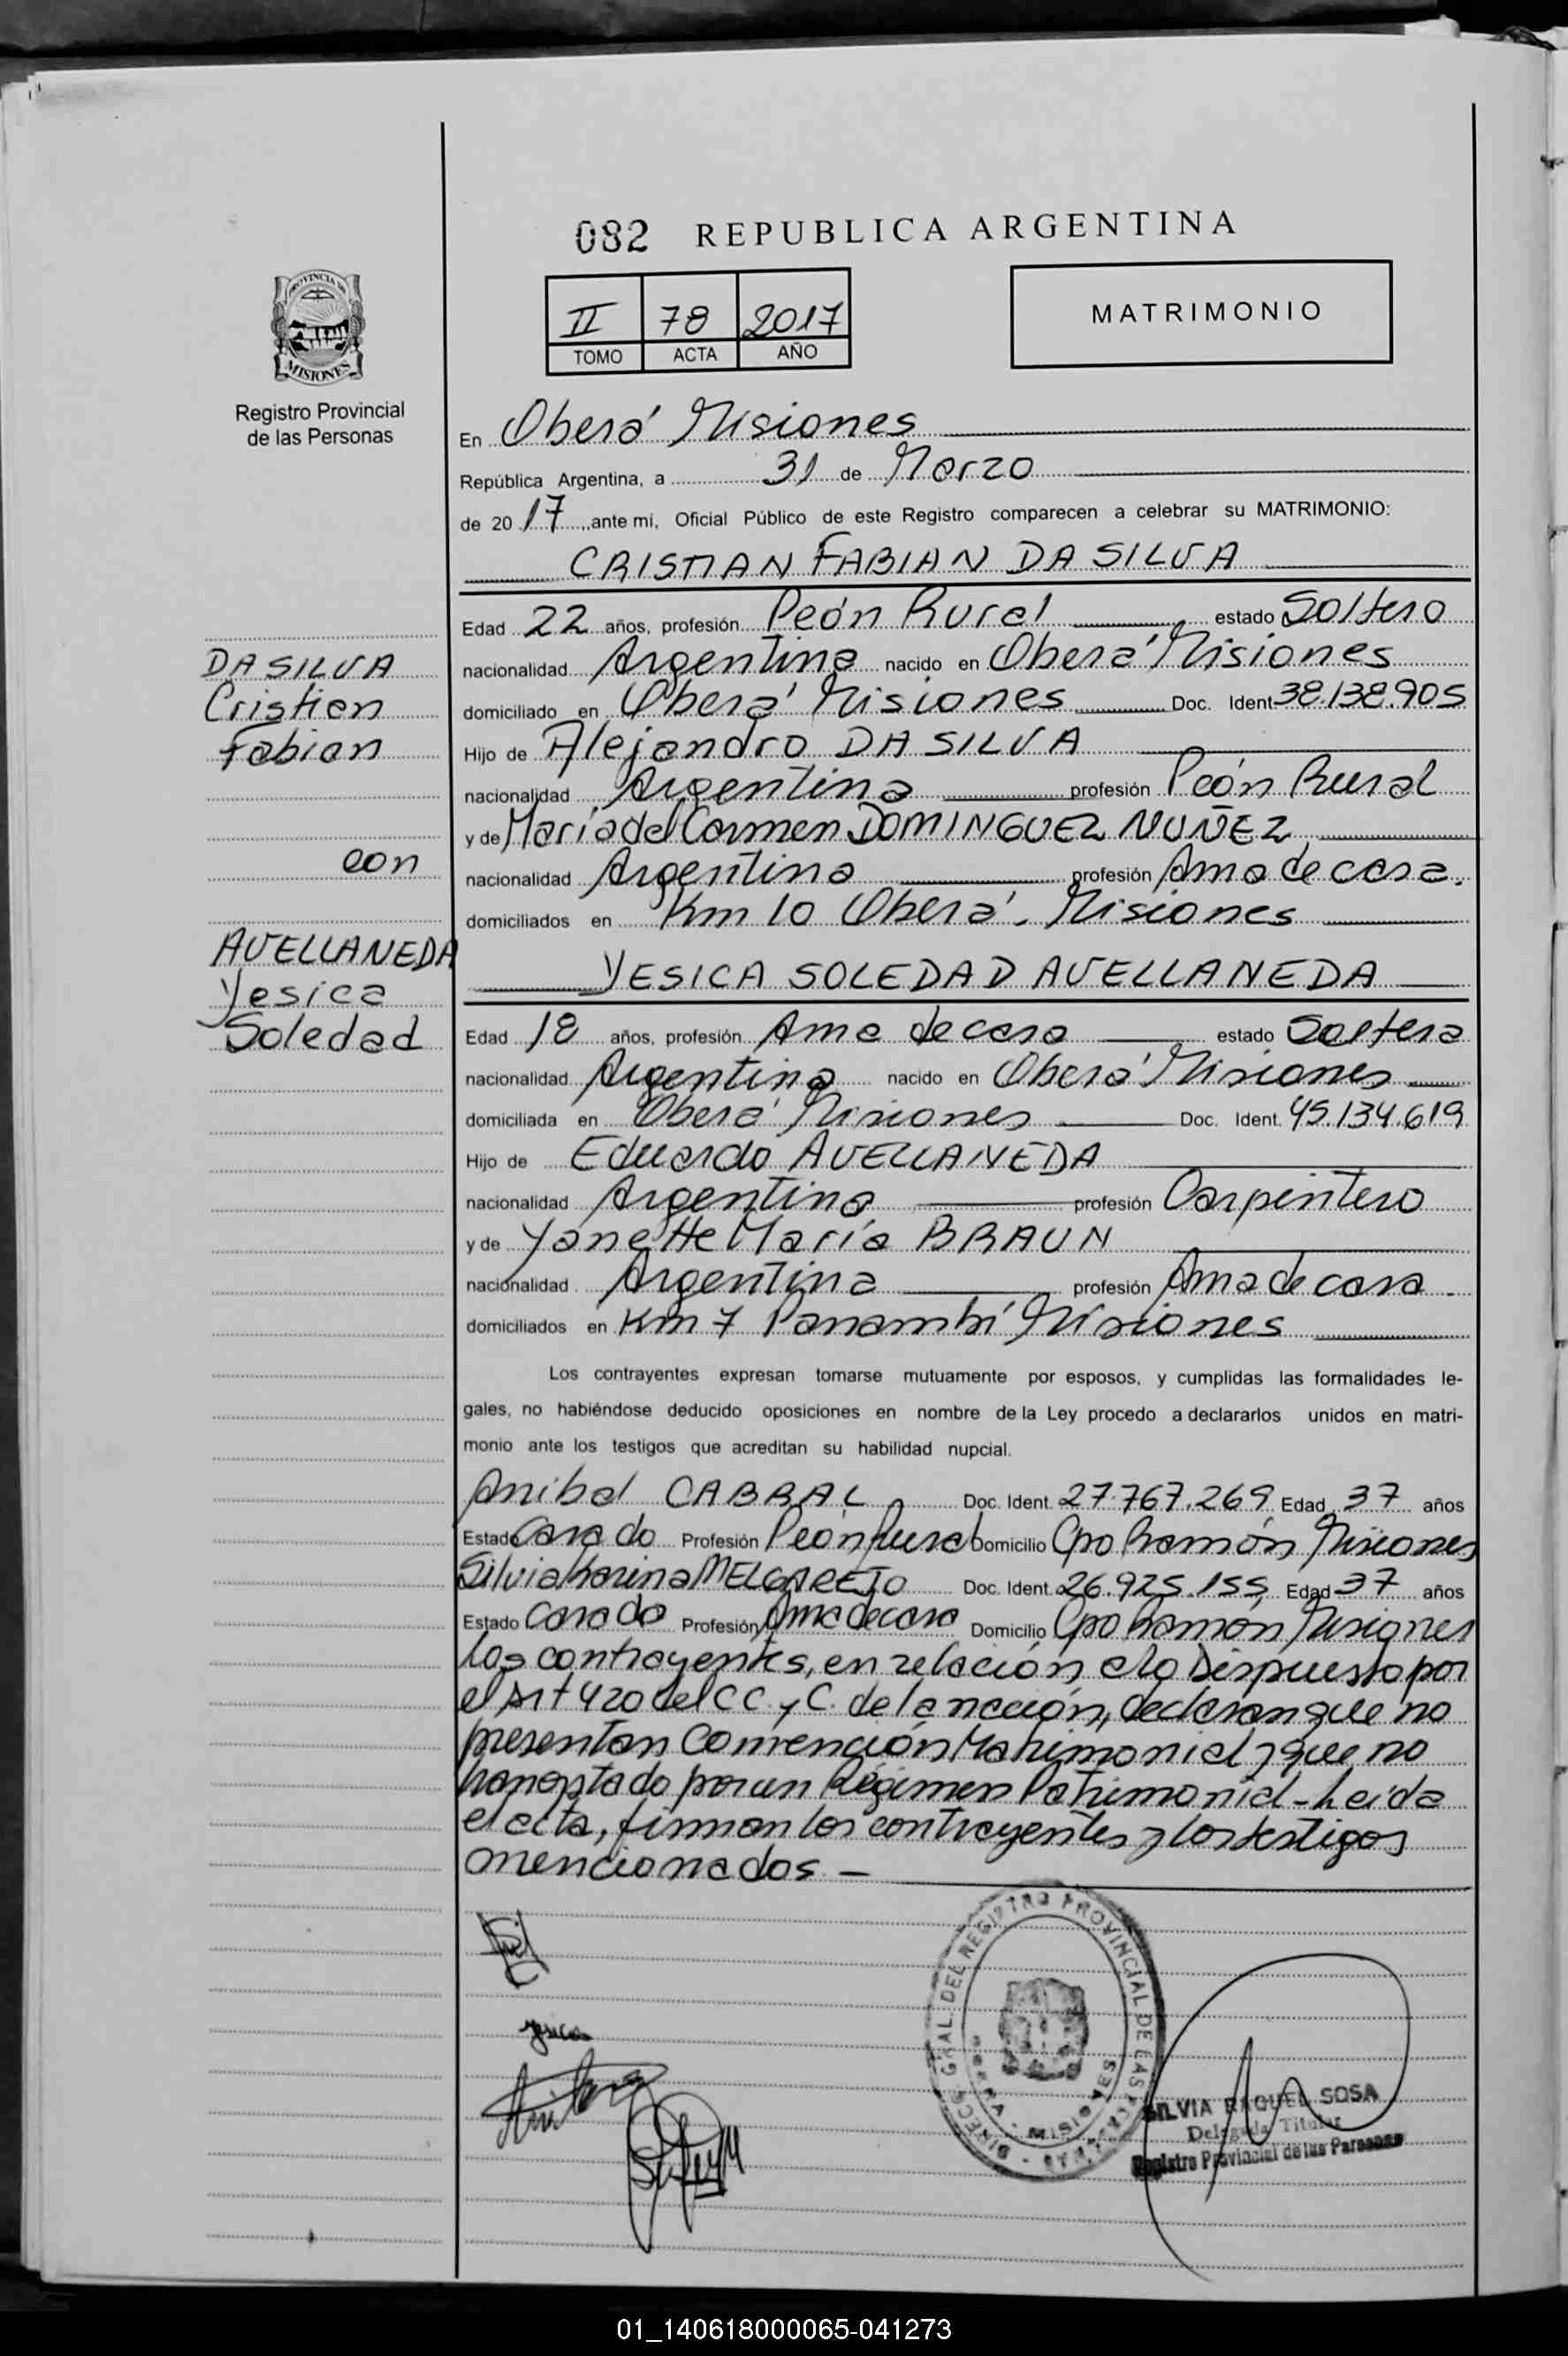 082 REPUBLICA ARGENTINA
II 78 2017
TOMO ACTA AÑO
MATRIMONIO
PROVINCIA DE
MISIONES
Registro Provincial
de las Personas
En Oberá Misiones
República Argentina, a 31 de Marzo
de 2017, ante mi, Oficial Público de este Registro comparecen a celebrar su MATRIMONIO:
CRISTIAN FABIAN DA SILVA
Edad 22 años, profesión Peón Rural estado Soltero
nacionalidad Argentina nacido en Oberá Misiones
domiciliado en Oberá Misiones Doc. Ident 38.138.905
Hijo de Alejandro DA SILVA
nacionalidad Argentina profesión Peón Rural
y de María del Carmen DOMINGUEZ NUÑEZ,
nacionalidad Argentina profesión Ama de casa.
domiciliados en Km 10 Oberá, Misiones
DA SILVA
Cristian
Fabian
con
AVELLANEDA
Yesica
Soledad
YESICA SOLEDAD AVELLANEDA
Edad 18 años, profesión Ama de casa estado Soltera
nacionalidad Argentina nacido en Oberá Misiones
domiciliada en Oberá Misiones Doc. Ident. 45.134.619
Hijo de Eduardo AVELLANEDA
nacionalidad Argentina profesión Carpintero
y de Yanette María BRAUN
nacionalidad Argentina profesión Ama de casa.
domiciliados en Km 7 Panambí Misiones
Los contrayentes expresan tomarse mutuamente por esposos, y cumplidas las formalidades le-
gales, no habiéndose deducido oposiciones en nombre de la Ley procedo a declararlos unidos en matri-
monio ante los testigos que acreditan su habilidad nupcial.
Anibal CABRAL Doc. Ident. 27.767.269 Edad 37 años
Estado Casado Profesión Peón Rural Domicilio Cpo Ramón Misiones
Silvia Karina MELGAREJO Doc. Ident. 26.925.155 Edad 37 años
Estado Casado Profesión Ama de casa Domicilio Cpo Ramón Misiones
Los contrayentes, en relación a lo Dispuesto por
el Art 420 del C C. y C. de la nación, declaran que no
presentan Convención Matrimonial y que no
han optado por un Régimen Patrimonial - Leída
el acta, firman los contrayentes y los testigos
mencionados. -
Yesica
DIRECC. GRAL. DEL REGISTRO PROVINCIAL DE LAS PERSONAS
OBERA - MISIONES
SILVIA RAQUEL SOSA
Delegada Titular
Registro Provincial de las Personas
01_140618000065-041273